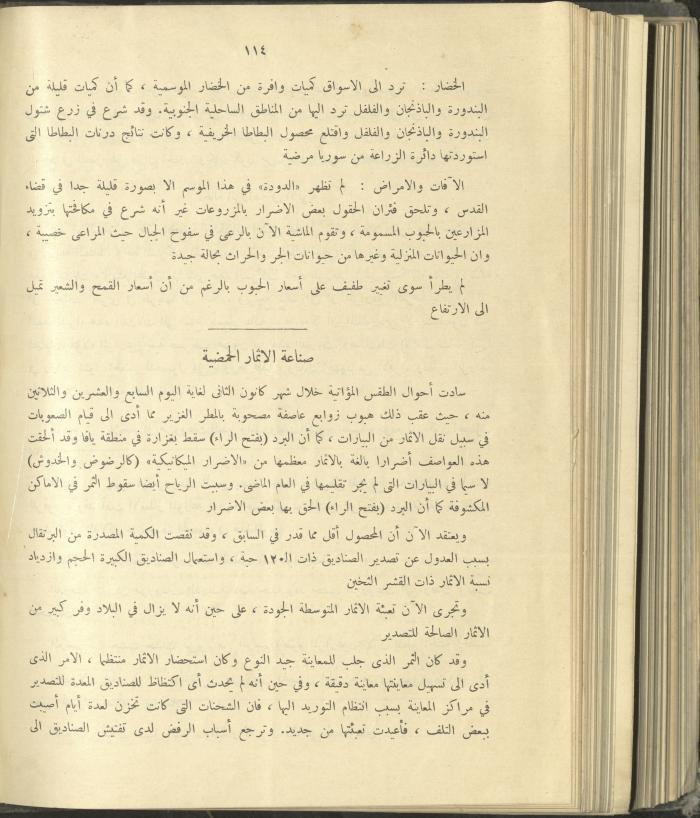 ١١٤
الخضار : ترد الى الاسواق كميات وافرة من الخضار الموسمية ، كما أن كميات قليلة من
البندورة والباذنجان والفلفل ترد اليها من المناطق الساحلية الجنوبية. وقد شرع في زرع شتول
البندورة والباذنجان والفلفل واقتلع محصول البطاطا الخريفية ، وكانت نتائج درنات البطاطا التى
استوردتها دائرة الزراعة من سوريا مرضية
الآفات والامراض : لم تظهر «الدودة» في هذا الموسم الا بصورة قليلة جدا في قضاء
القدس ، وتلحق فئران الحقول بعض الاضرار بالمزروعات غير أنه شرع في مكافحتها بتزويد
المزارعين بالحبوب المسمومة ، وتقوم الماشية الآن بالرعى في سفوح الجبال حيث المراعى خصيبة ،
وان الحيوانات المنزلية وغيرها من حيوانات الجر والحراث بحالة جيدة
لم يطرأ سوى تغيير طفيف على أسعار الحبوب بالرغم من أن أسعار القمح والشعير تميل
الى الارتفاع
صناعة الاثمار الحمضية
سادت أحوال الطقس المؤاتية خلال شهر كانون الثانى لغاية اليوم السابع والعشرين والثلاثين
منه ، حيث عقب ذلك هبوب زوابع عاصفة مصحوبة بالمطر الغزير مما أدى الى قيام الصعوبات
في سبيل نقل الاثمار من البيارات ، كما أن البرد (بفتح الراء) سقط بغزارة في منطقة يافا وقد ألحقت
هذه العواصف أضرارا بالغة بالاثمار معظمها من «الاضرار الميكانيكية» (كالرضوض والخدوش)
لا سيما في البيارات التى لم يجر تقليمها في العام الماضى. وسببت الرياح أيضا سقوط الثمر في الاماكن
المكشوفة كما أن البرد (بفتح الراء) الحق بها بعض الاضرار
ويعتقد الآن أن المحصول أقل مما قدر في السابق ، وقد نقصت الكمية المصدرة من البرتقال
بسبب العدول عن تصدير الصناديق ذات الـ١٢٠ حبة ، واستعمال الصناديق الكبيرة الحجم وازدياد
نسبة الاثمار ذات القشر الثخين
وتجرى الآن تعبئة الاثمار المتوسطة الجودة ، على حين أنه لا يزال في البلاد وفر كبير من
الاثمار الصالحة للتصدير
وقد كان الثمر الذى جلب للمعاينة جيد النوع وكان استحضار الاثمار منتظما ، الامر الذى
أدى الى تسهيل معاينتها معاينة دقيقة ، وفي حين أنه لم يحدث أى اكتظاظ للصناديق المعدة للتصدير
في مراكز المعاينة بسبب انتظام التوريد اليها ، فان الشحنات التى كانت تخزن لعدة أيام أصيبت
ببعض التلف ، فأعيدت تعبئتها من جديد. وترجع أسباب الرفض لدى تفتيش الصناديق الى